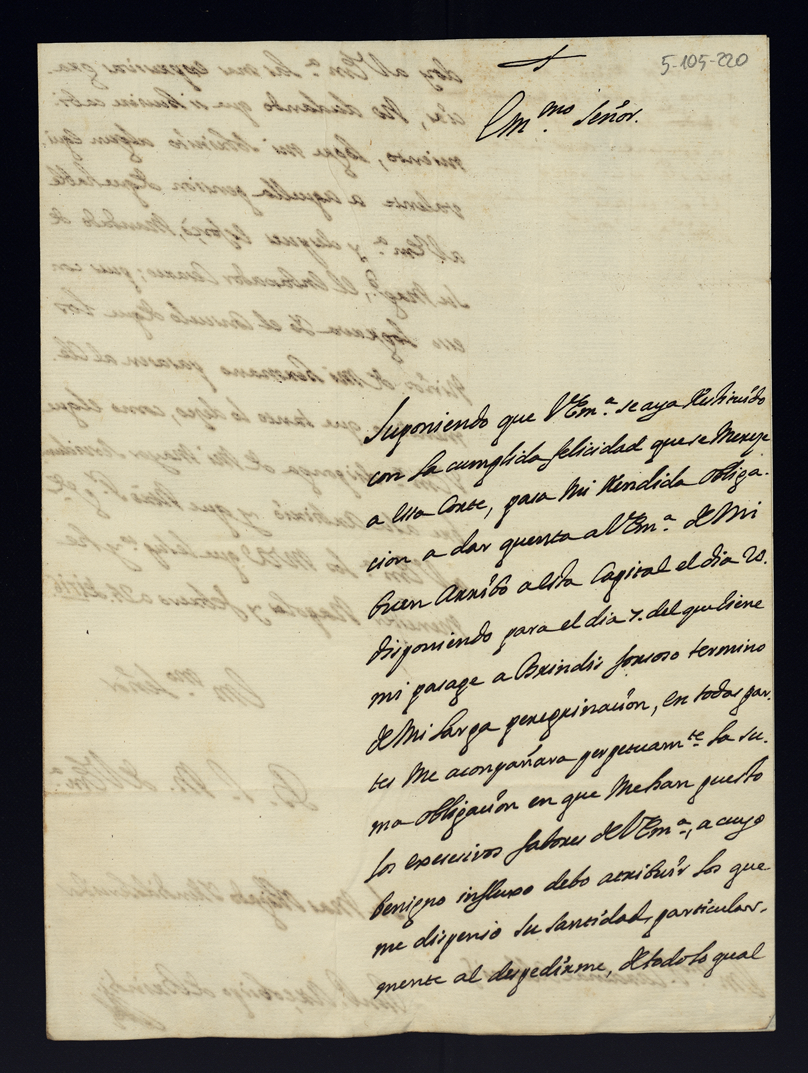 5-105-220
Em.mo Señor.
Suponiendo que V Em.a se aya Restituido
con la cumplida felicidad que se Mereze
a essa Corte, pasa Mi Rendida obliga-
cion a dar quenta a V Em.a de Mi
buen Arribo a esta Capital el dia 20.
disponiendo para el dia 7. del que viene
mi pasage a Brindis forsoso termino
de Mi larga peregrinacion, en todas par-
tes Me acompañara perpetuam.te la su-
ma obligacion en que Me han puesto
los excesivos fabores de V Em.a, a cuyo
benigno influxo debo atribuir los que
me dispenso su Santidad, particular-
mente al despedirme, de todo lo qual